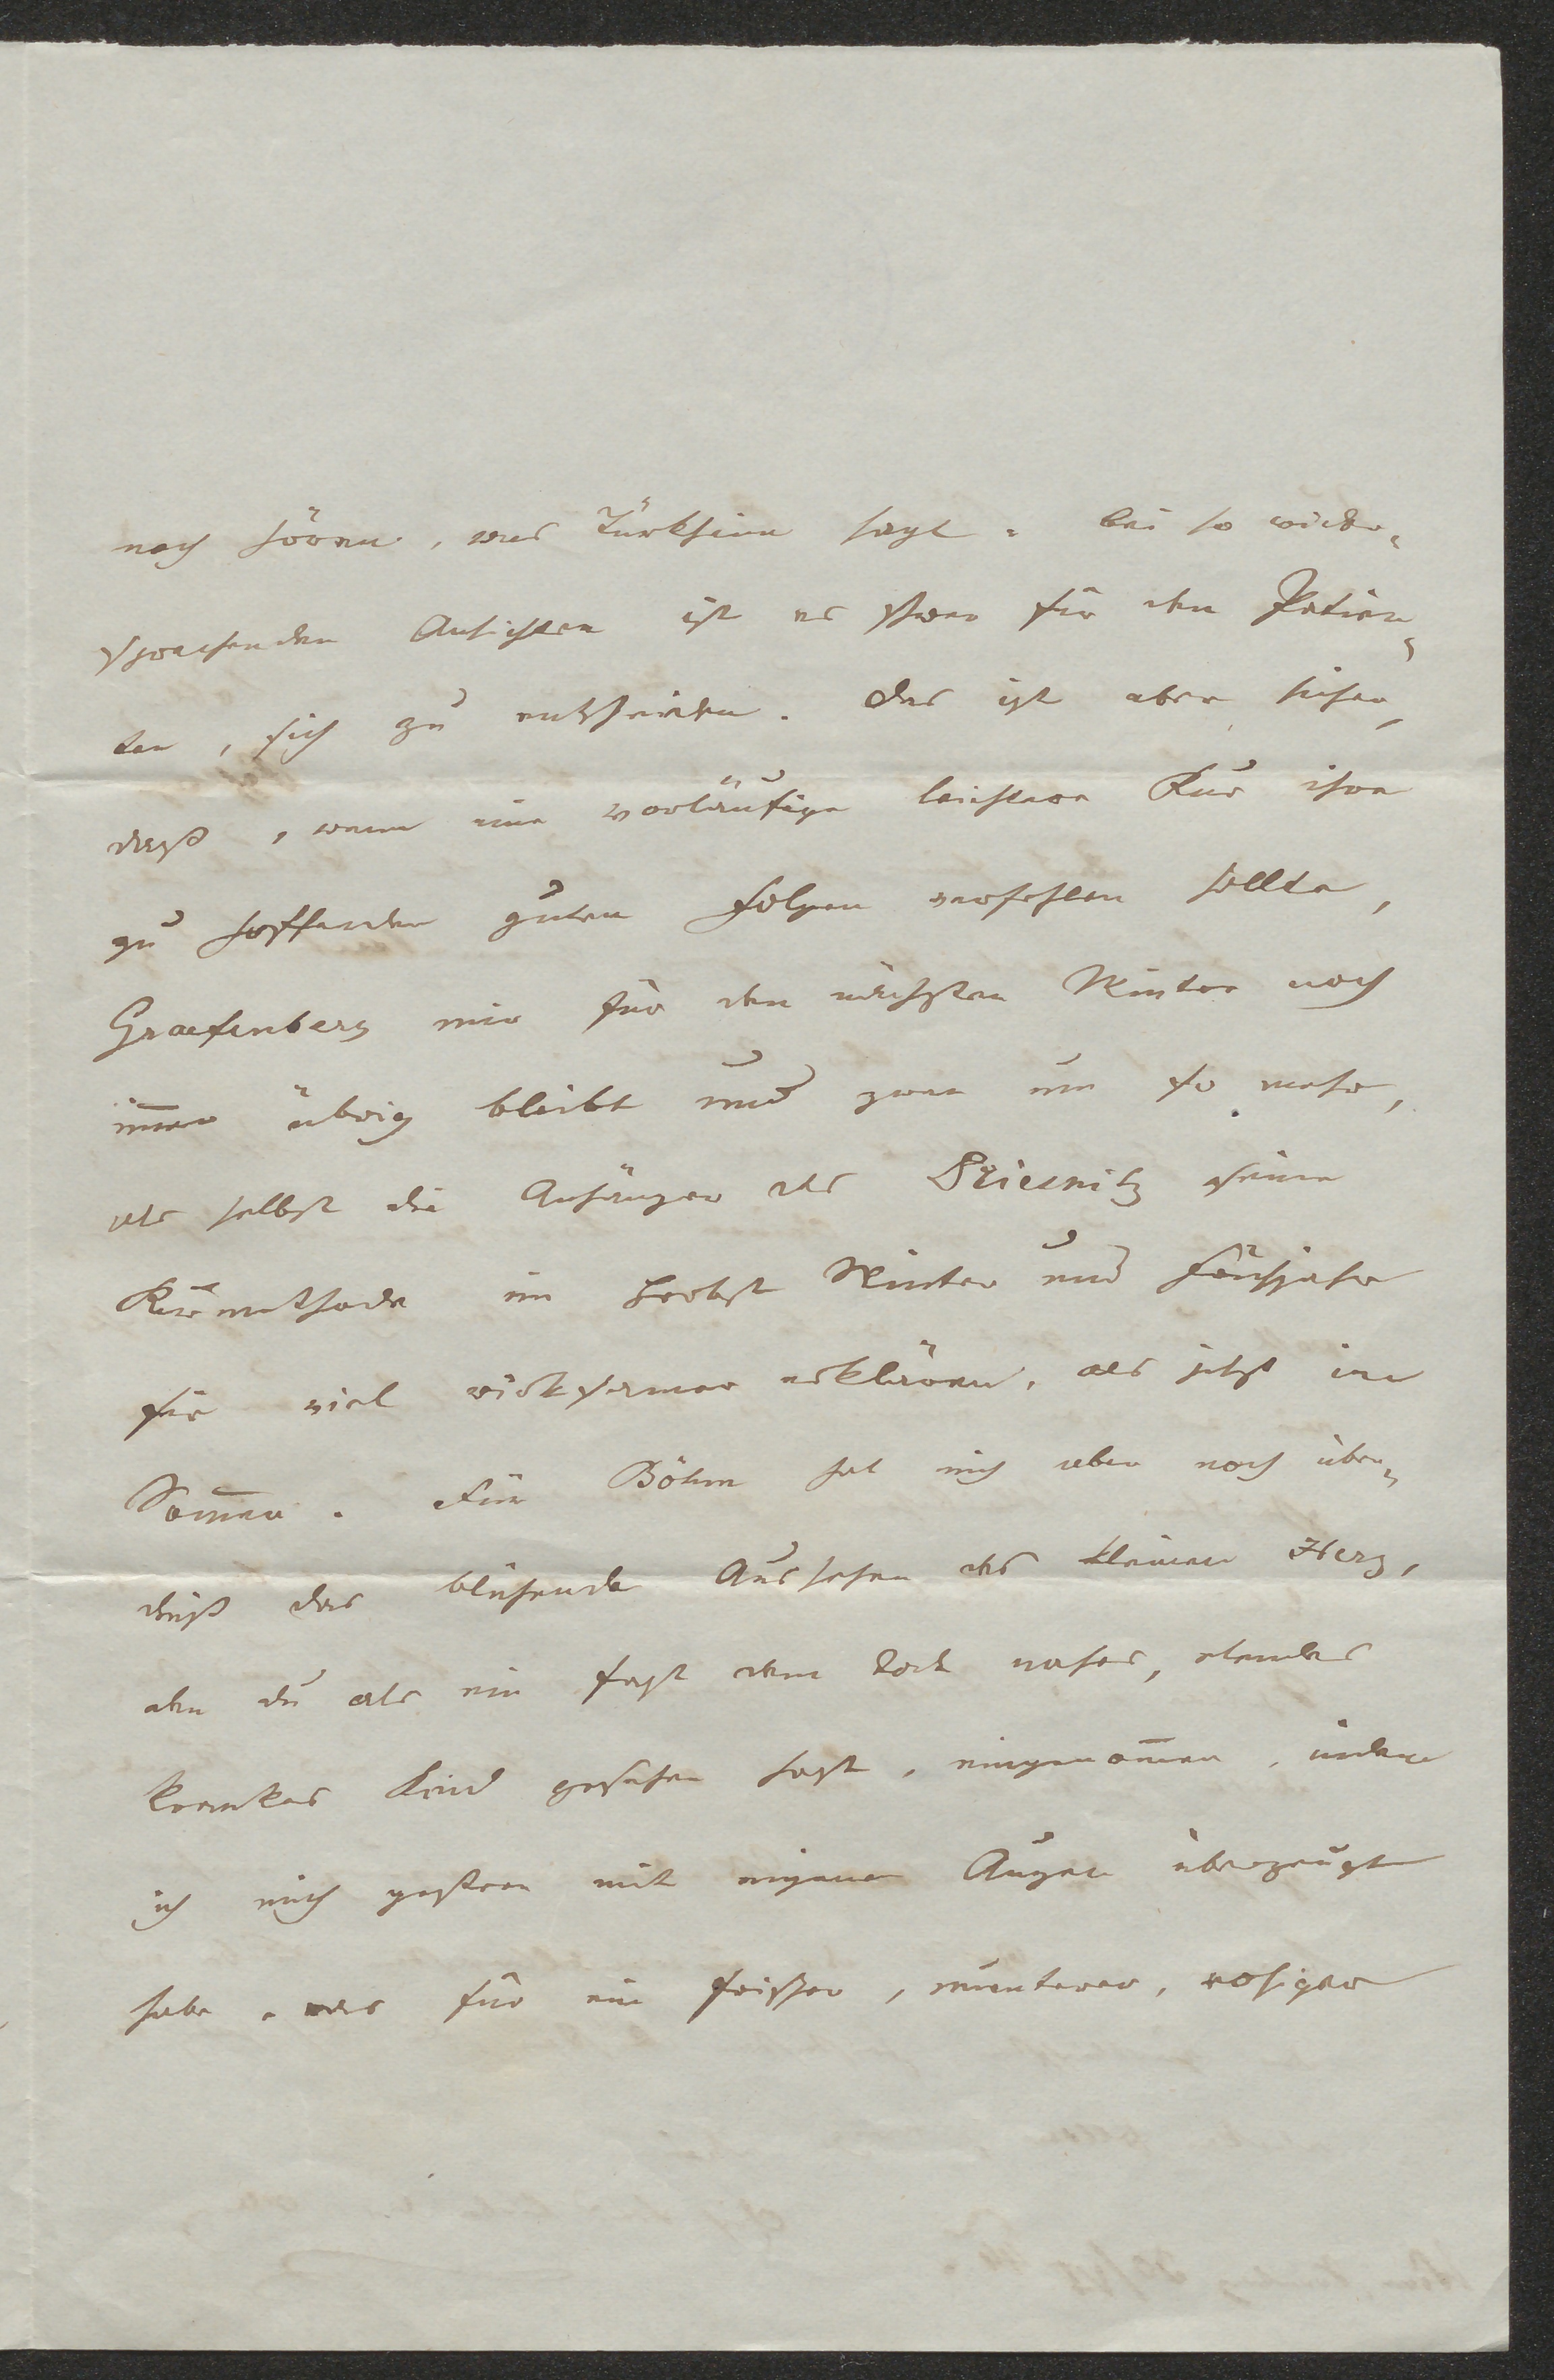 noch hören, was Türkheim sagt. bei so wider-
sprechenden Ansichten ist es schwer für den Patien-
ten, sich zu entscheiden. Das ist aber sicher,
daß, wenn eine vorläufige leichtere Kur ihre
zu hoffenden guten Folgen verfehlen sollte,
Graefenberg mir für den nächsten Winter noch
im̄er übrig bleibt und zwar um so mehr,
als selbst die Anhänger des Priesnitz seine
Kurmethode im Herbst Winter und Frühjahr
für viel wirksamer erklären, als jetzt im
Som̄er. Für Böhm hat mich aber noch über-
dieß das blühende Aussehen des kleinen Herz,
den du als ein fast dem Tode nahes, elendes
krankes Kind gesehen hast, eingenom̄en, indem
ich mich gestern mit eigenen Augen überzeugt
habe, was für ein frischer, munterer, rosiger